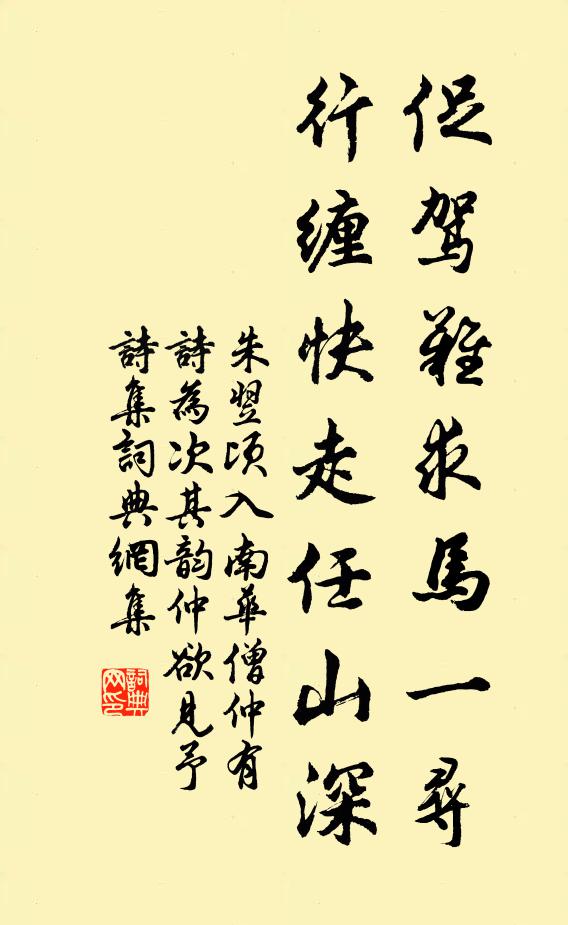 促駕難求馬一尋
行纏快走任山深
朱翌頃入南華僧仲有
詩為次其韵仲欲見予
詩集詞典網集
詞典
网印